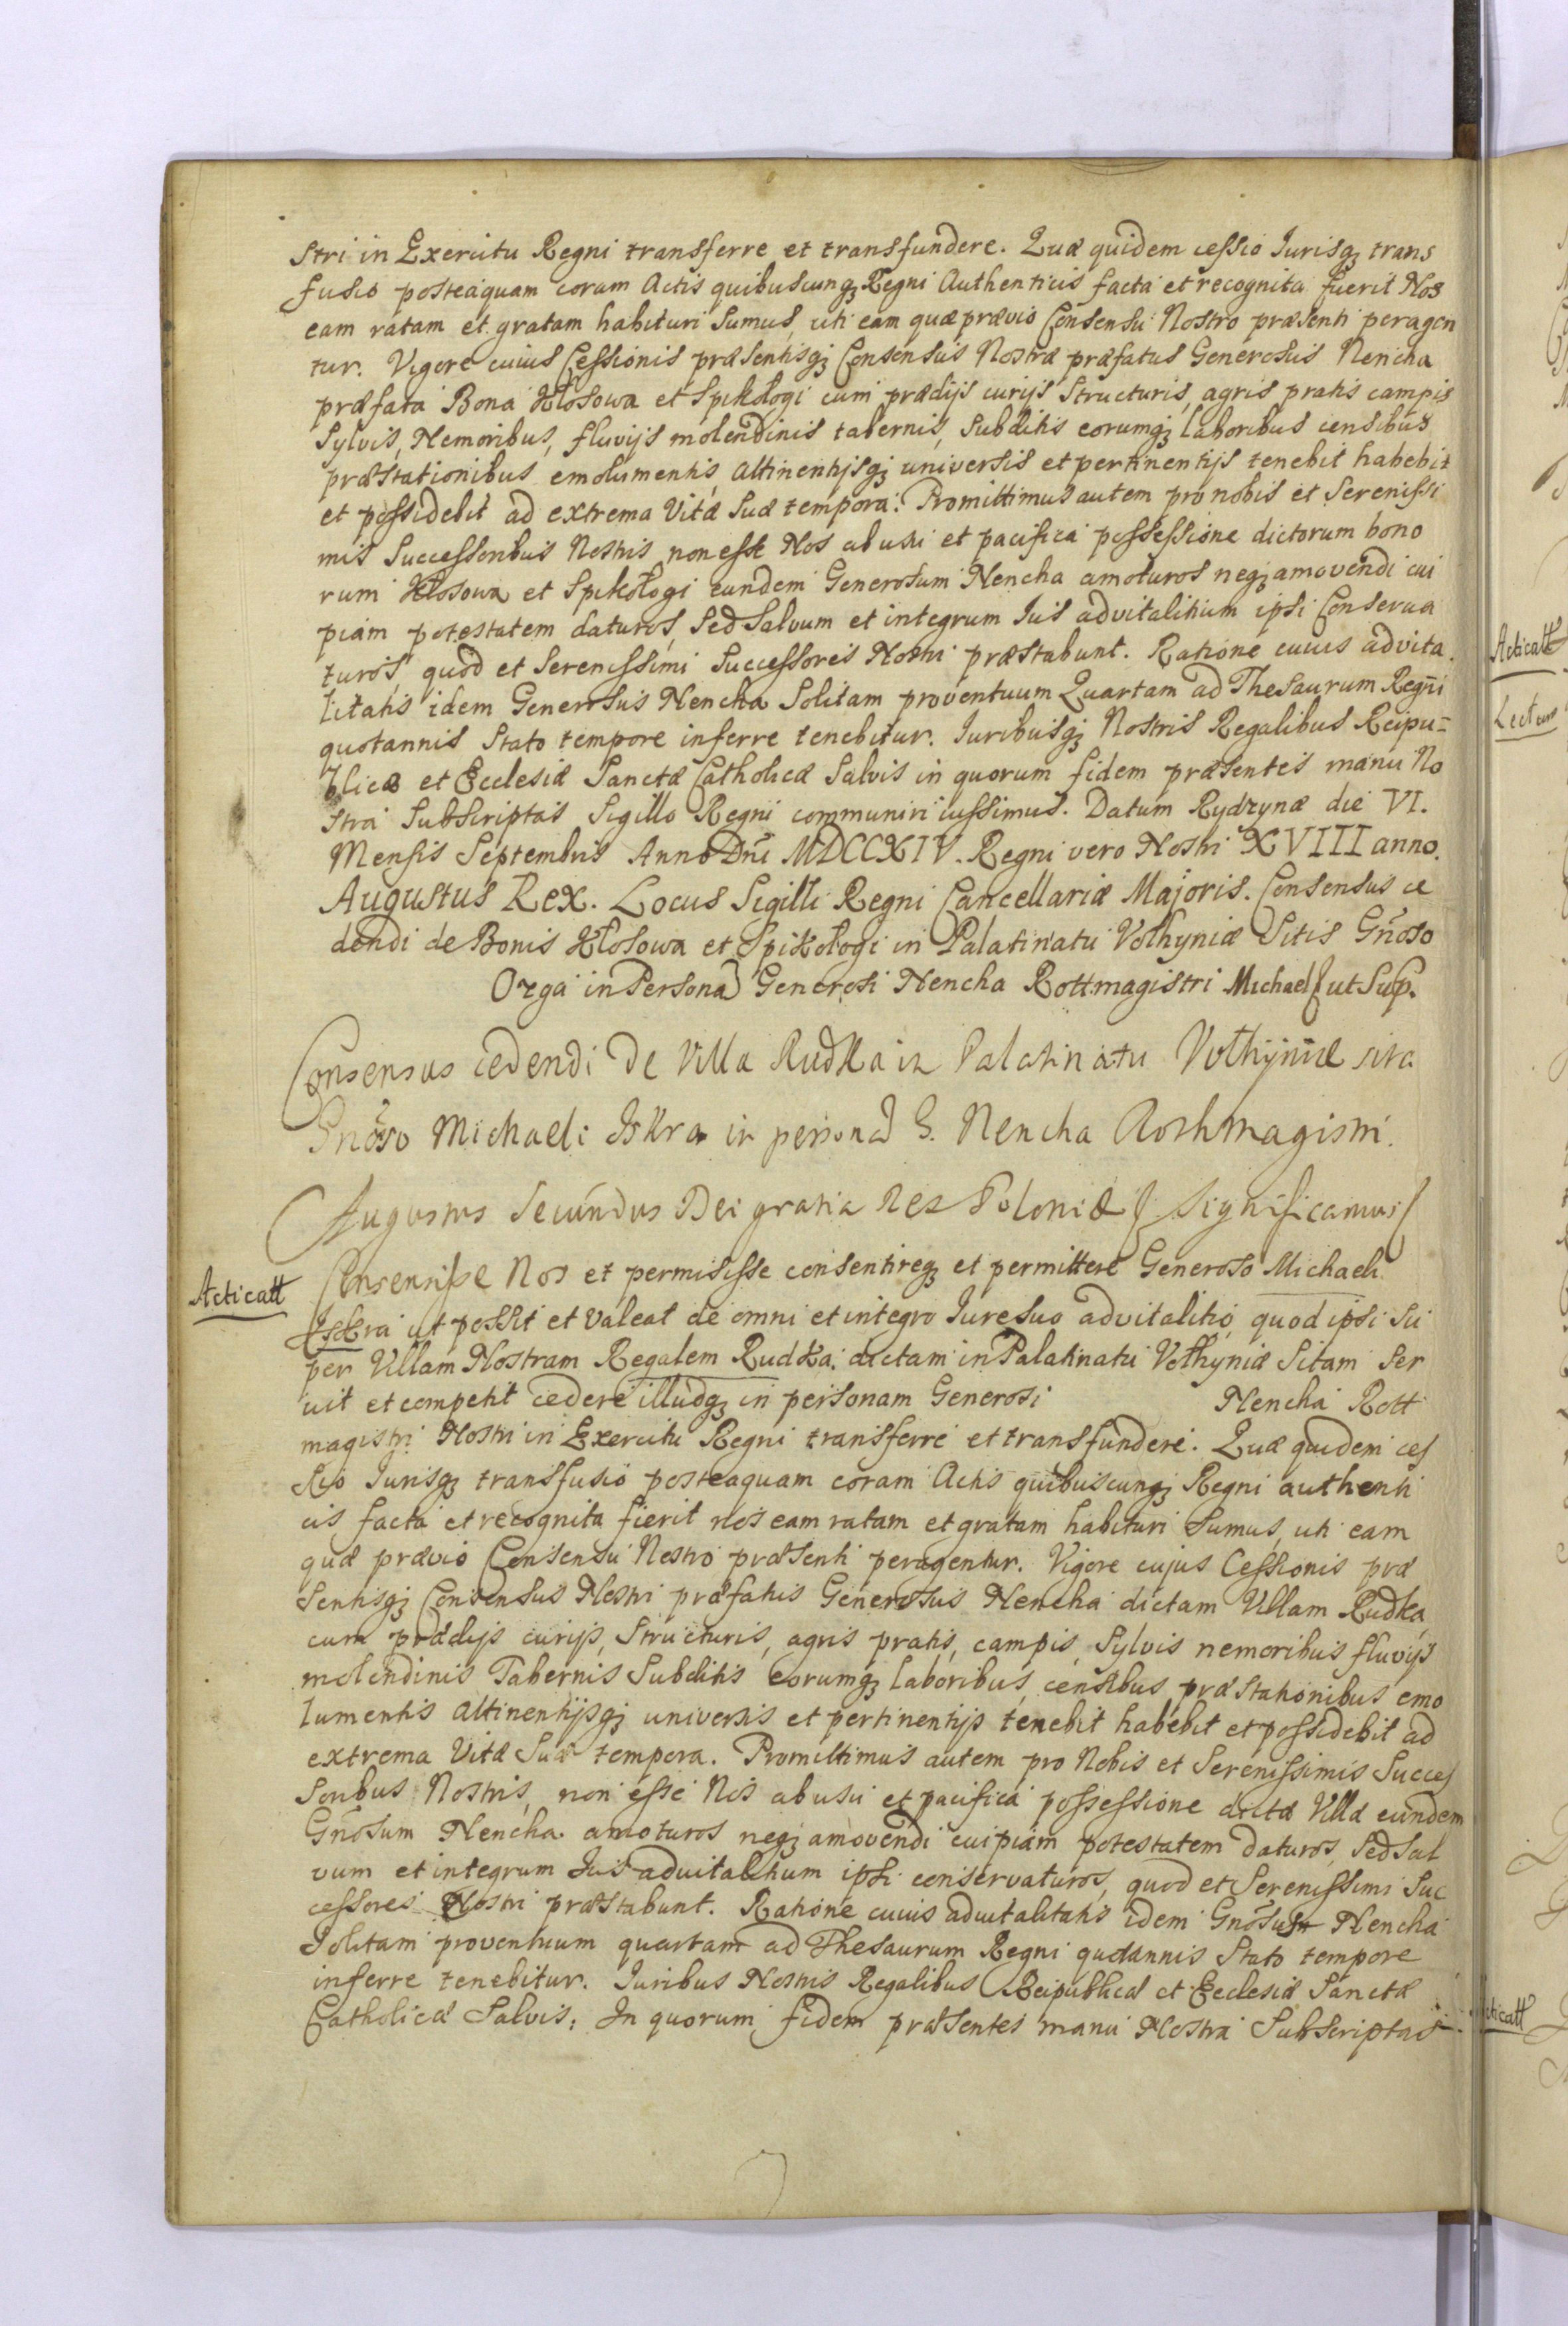 stri in Exercitu Regni transferre et transfundere. Quæ quidem cessio Jurisq; trans
fusio posteaquam coram Actis quibuscunq; Regni Authenticis facta et recognita fuerit Nos
eam ratam et gratam habituri sumus, uti eam quæ prævio Consensu Nostro præsenti peragen
tur. Vigore cuius Cessionis præsentisq; Consensus Nostræ præfatus Generosus Nencha
præfata Bona Kłosowa et Spikołogi cum prædijs curijs Structuris, agris pratis campis
Sylvis, Nemoribus, fluvijs molendinis tabernis, Subditis eorumq; laboribus censibus
præstationibus emolumentis, Attinentijsq; universis et pertinentijs tenebit habebit
et possidebit ad extrema Vitæ Suæ tempora. Promittimus autem pro nobis et Serenissi
mis Successoribus Nostris, non esse Nos ab usu et pacifica possessione dictorum bono
rum Kłosowa et Spikołogi eundem Generosum Nencha amoturos neq; amovendi cui
piam potestatem daturos, Sed Salvum et integrum Jus advitalitium ipsi Conserva
turos, quod et Serenissimi Successores Nostri præstabunt. Ratione cuius advita
litatis idem Generosus Nencha Solitam proventuum Quartam ad Thesaurum Regni
quotannis Stato tempore inferre tenebitur. Juribusq; Nostris Regalibus Reipu=
blicæ et Ecclesiæ Sanctæ Catholicæ Salvis in quorum fidem præsentes manu No
stra Subscriptas Sigillo Regni communiri iussimus. Datum Rydzynæ die VI.
Mensis Septembris Anno Dni MDCCXIV. Regni vero Nostri XVIII anno.
Augustus Rex. Locus Sigilli Regni Cancellariæ Majoris. Consensus ce
dendi de Bonis Kłosowa et Spikołogi in Palatinatu Volhyniæ Sitis Gnoso
Ozga in Personã Generosi Nencha Rottmagistri Michael ut Sup.
Consensus cedendi de Villa Rudka in Palatinatu Volhyniæ sita
Gnoso Michaeli Iskra in personã G. Nencha Rothmagistri.
Augustus Secundus Dei gratia Rex Poloniæ Significamus
Acticatt
Consensisse Nos et permisisse consentireq; et permittere Generoso Michaeli
Iskra ut possit et valeat de omni et integro Jure suo advitalitio, quod ipsi su
per Villam Nostram Regalem Rudka dictam in Palatinatu Volhyniæ Sitam ser
vit et competit cedere illudq; in personam Generosi Nencha Rott
magistri Nostri in Exercitu Regni transferre et transfundere. Quæ quidem ces
sio Jurisq; transfusio posteaquam coram Actis quibuscunq; Regni authenti
cis facta et recognita fierit nos eam ratam et gratam habituri Sumus, uti eam
quæ prævio Consensu Nostro præsenti peragentur. Vigore cujus Cessionis præ
sentisq; Consensus Nostri præfatus Generosus Nencha dictam Villam Rudka,
cum prædijs curijs, Structuris, agris pratis, campis, Sylvis nemoribus fluvijs
molendinis Tabernis Subditis eorumq; laboribus, censibus, præstationibus emo
lumentis attinentijsq; universis et pertinentijs tenebit habebit et possidebit ad
extrema Vitæ Suæ tempora. Promittimus autem pro Nobis et Serenissimis Succes
soribus Nostris, non esse Nos ab usu et pacifica possessione dictæ Villæ eundem
Gnosum Nencha amoturos neq; amovendi cuipiam potestatem daturos, Sed Sal
vum et integrum Jus advitalitium ipsi conservaturos, quod et Serenissimi Suc
cessores Nostri præstabunt. Ratione cuius advitalitatis idem Gnosus Nencha
Solitam proventuum quartam ad Thesaurum Regni quotannis Stato tempore
inferre tenebitur. Juribus Nostris Regalibus Reipublicæ et Ecclesiæ Sanctæ
Catholicæ Salvis. In quorum fidem præsentes manu Nostra Subscriptas
Acticatt
Lectum
cticatt